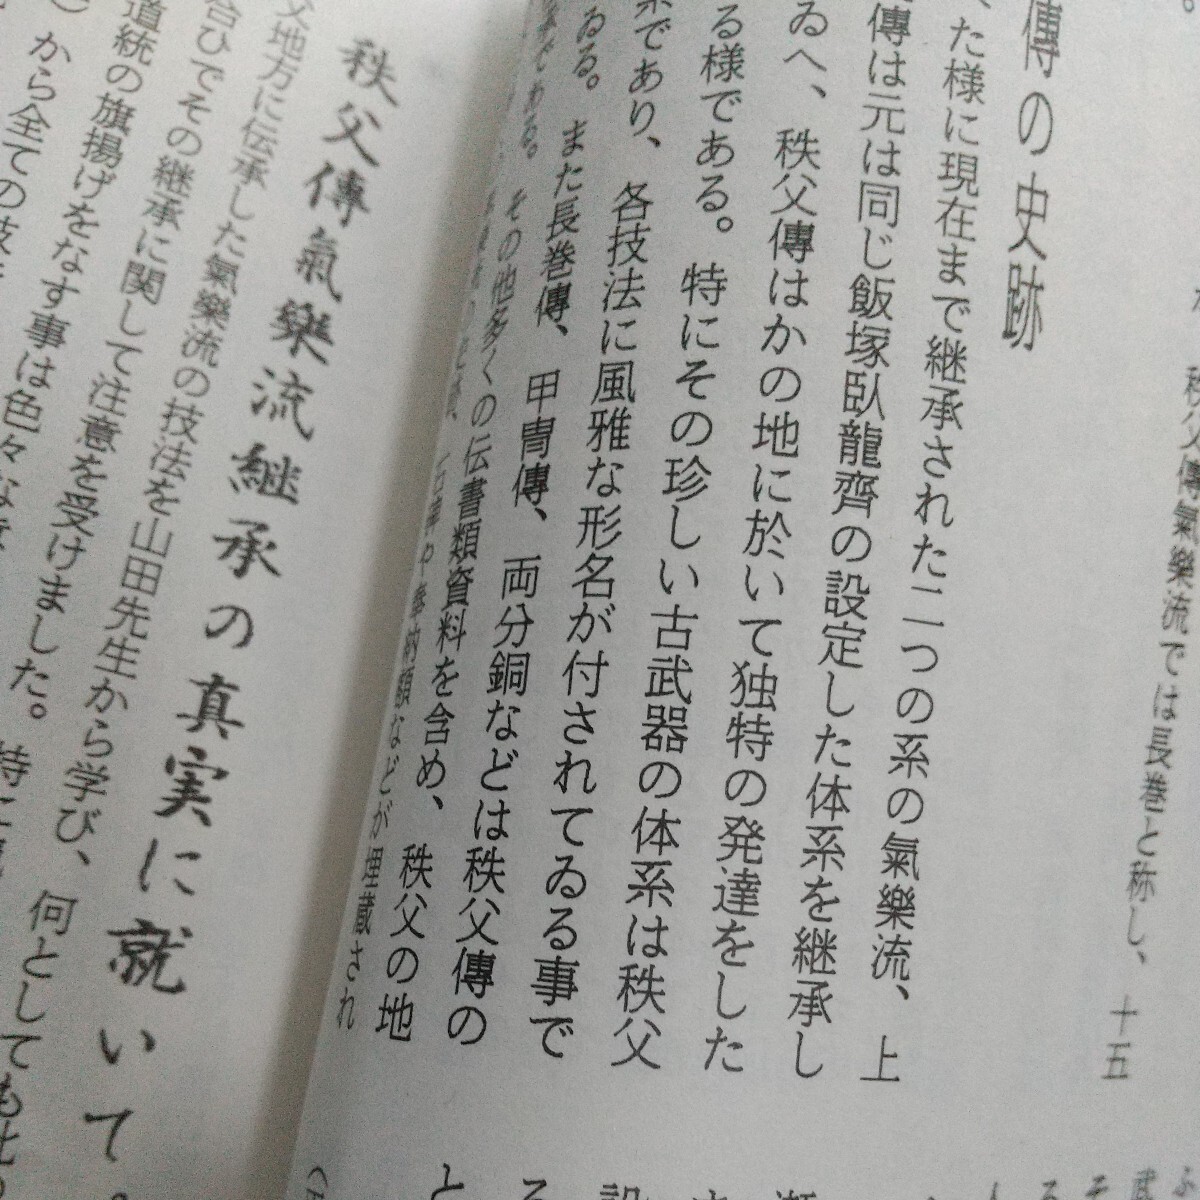 秩父傳氣樂流では長巻と称し、十五
傳の史跡
た様に現在まで継承された二つの系の氣樂流、上
傳は元は同じ飯塚臥龍齊の設定した体系を継承し
ゐへ、秩父傳はかの地に於いて独特の発達をした
る様である。特にその珍しい古武器の体系は秩父
であり、各技法に風雅な形名が付されてゐる事で
ゐる。また長巻傳、甲冑傳、両分銅などは秩父傳の
である。その他多くの伝書類資料を含め、秩父の地
や奉納額などが埋蔵され
秩父傳氣樂流継承の真実に就いて
父地方に伝承した氣樂流の技法を山田先生から学び、何としても
合ひでその継承に関して注意を受けました。特に
道統の旗揚げをなす事は色々な
から全ての技